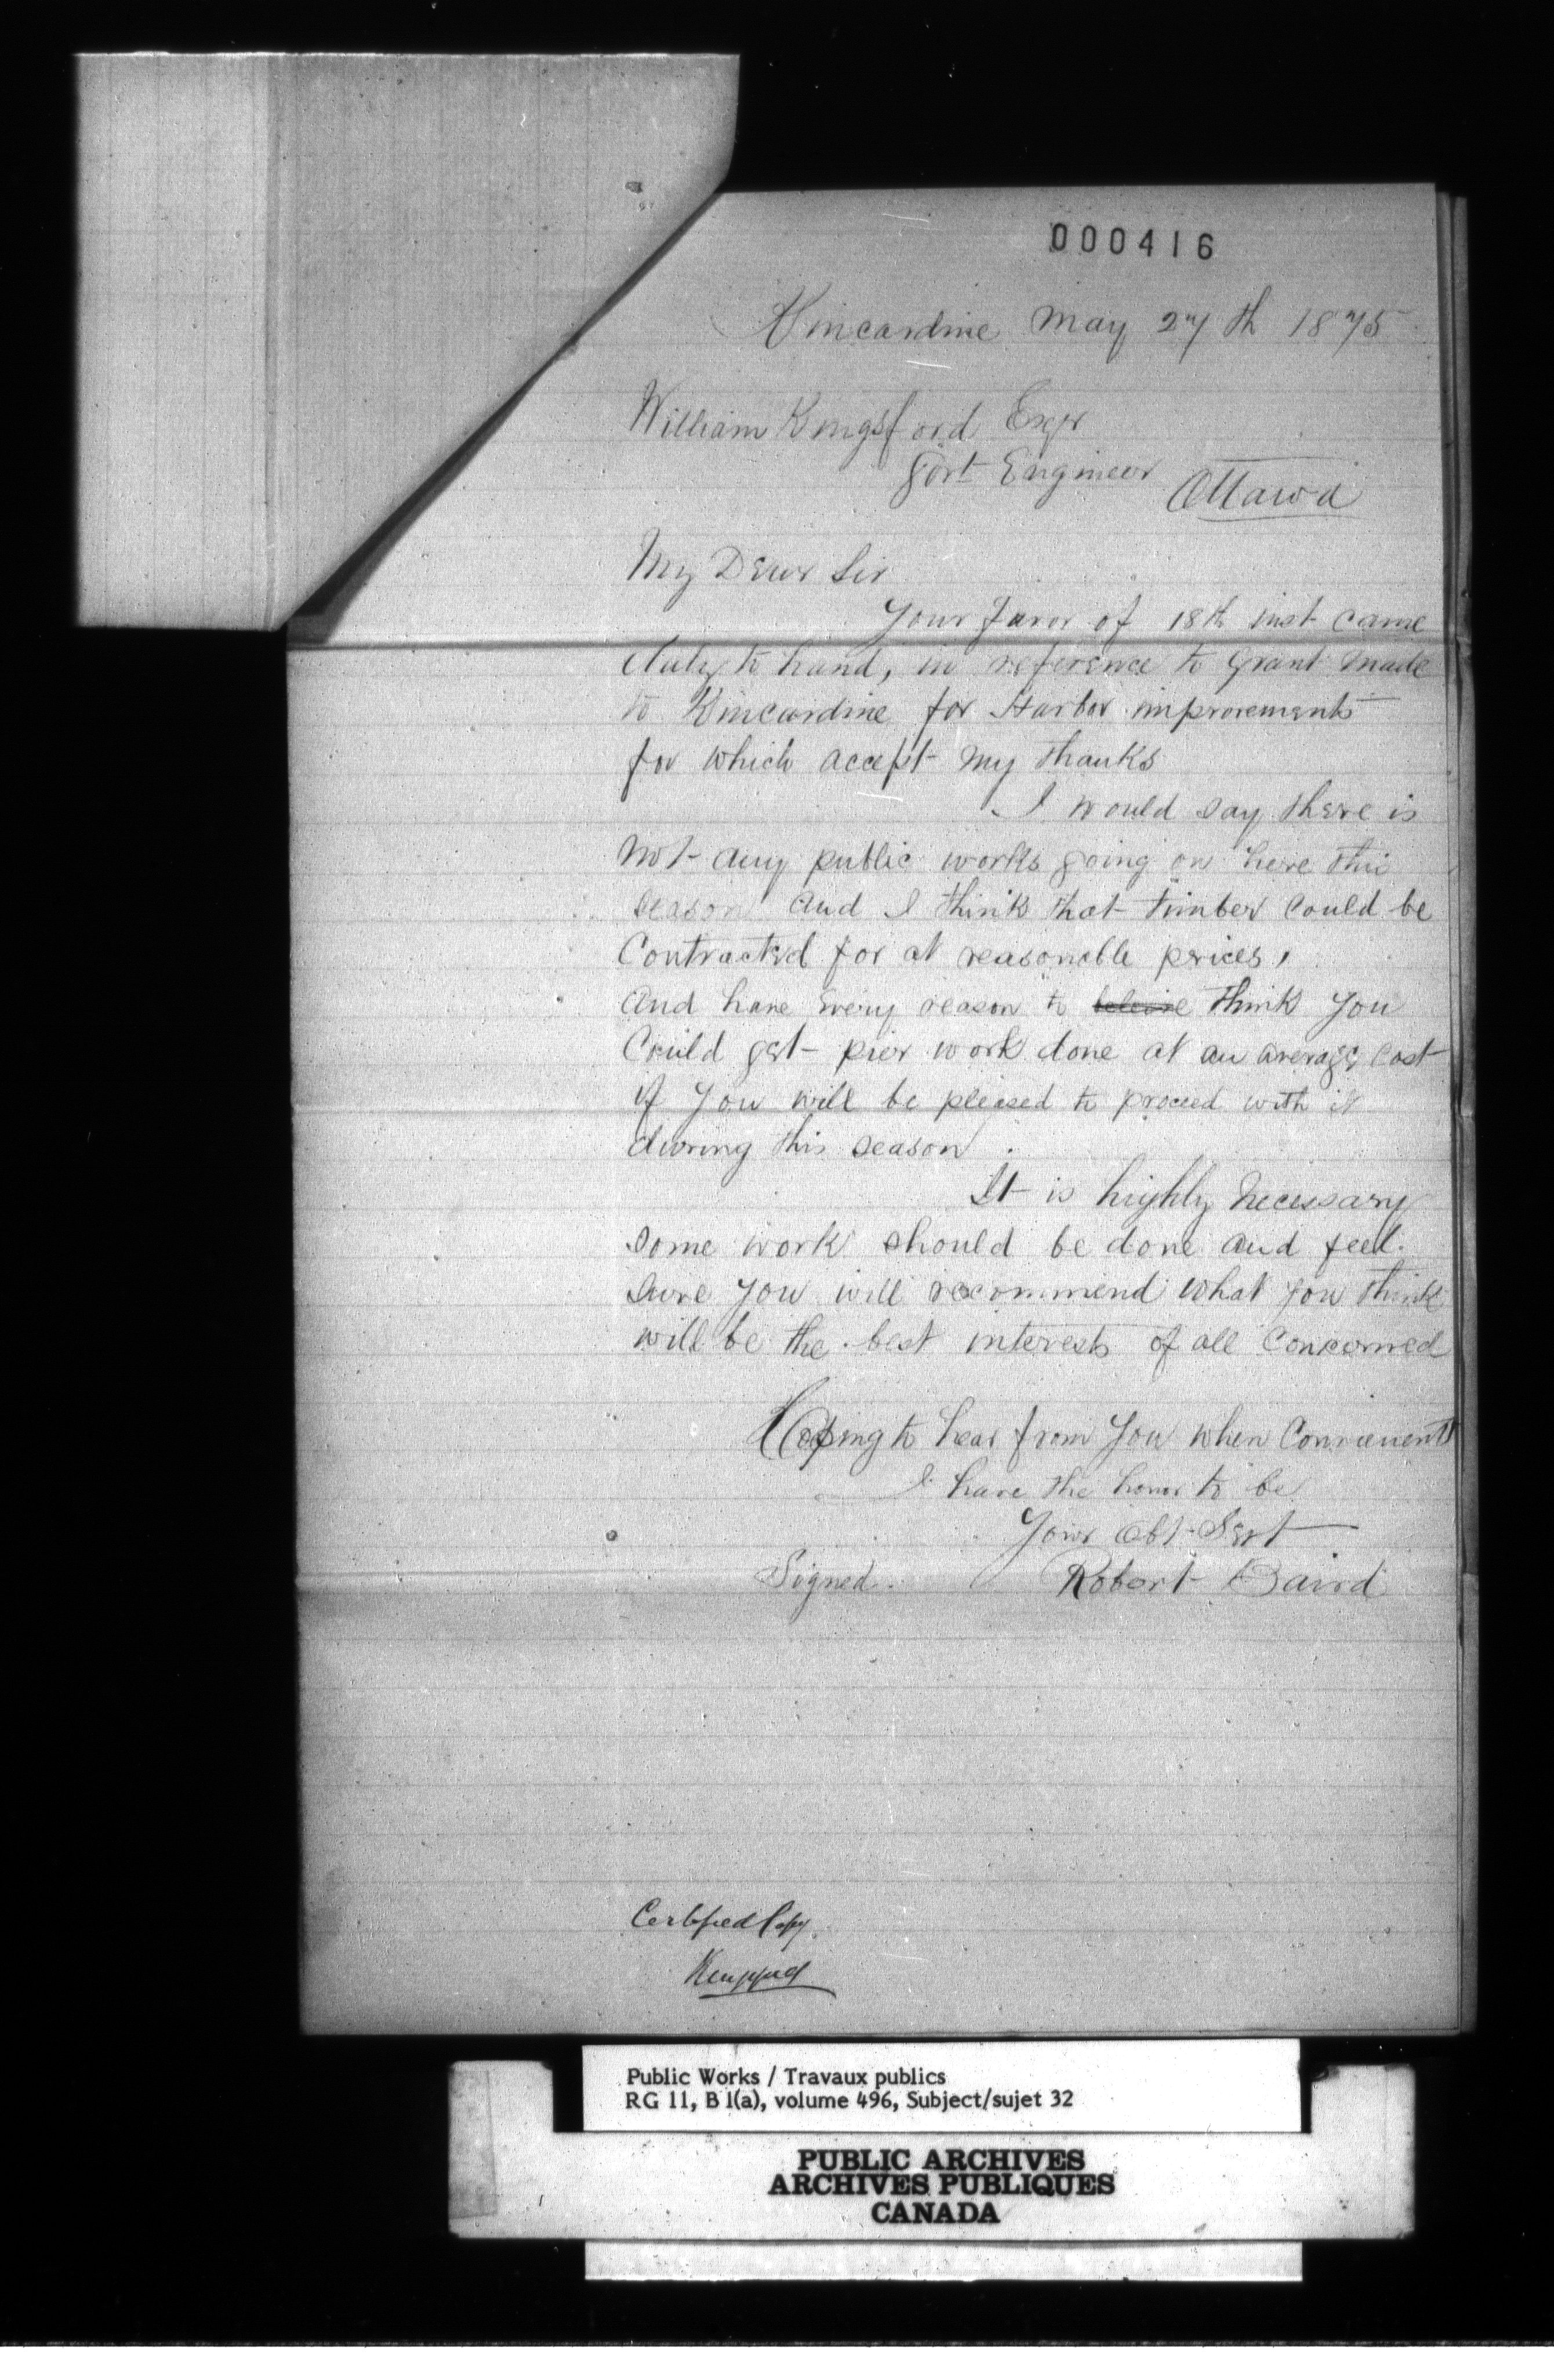 000416
Kincardine May 27th 1875
William Kingsford Esqr
Govt Engineer
Ottawa
My Dear Sir
Your favor of 18th inst came
duly to hand, in reference to Grant made
to Kincardine for Harbor improvements
for which accept my thanks
I would say there is
not any public works going on here this
season and I think that timber could be
Contracted for at reasonable prices,
And have every reason to beleive think you
Could get pier work done at an average cost
if you will be pleased to proceed with it
during this season.
It is highly necessary
some work should be done and feel
sure you will recommend what you think
will be the best interests of all Concerned
Hoping to hear from you when Convenient
I have the honor to be
Your Obt Sert
Signed. Robert Baird
Certified Copy.
Public Works / Travaux publics
RG 11, B 1(a), volume 496, Subject/sujet 32
PUBLIC ARCHIVES
ARCHIVES PUBLIQUES
CANADA